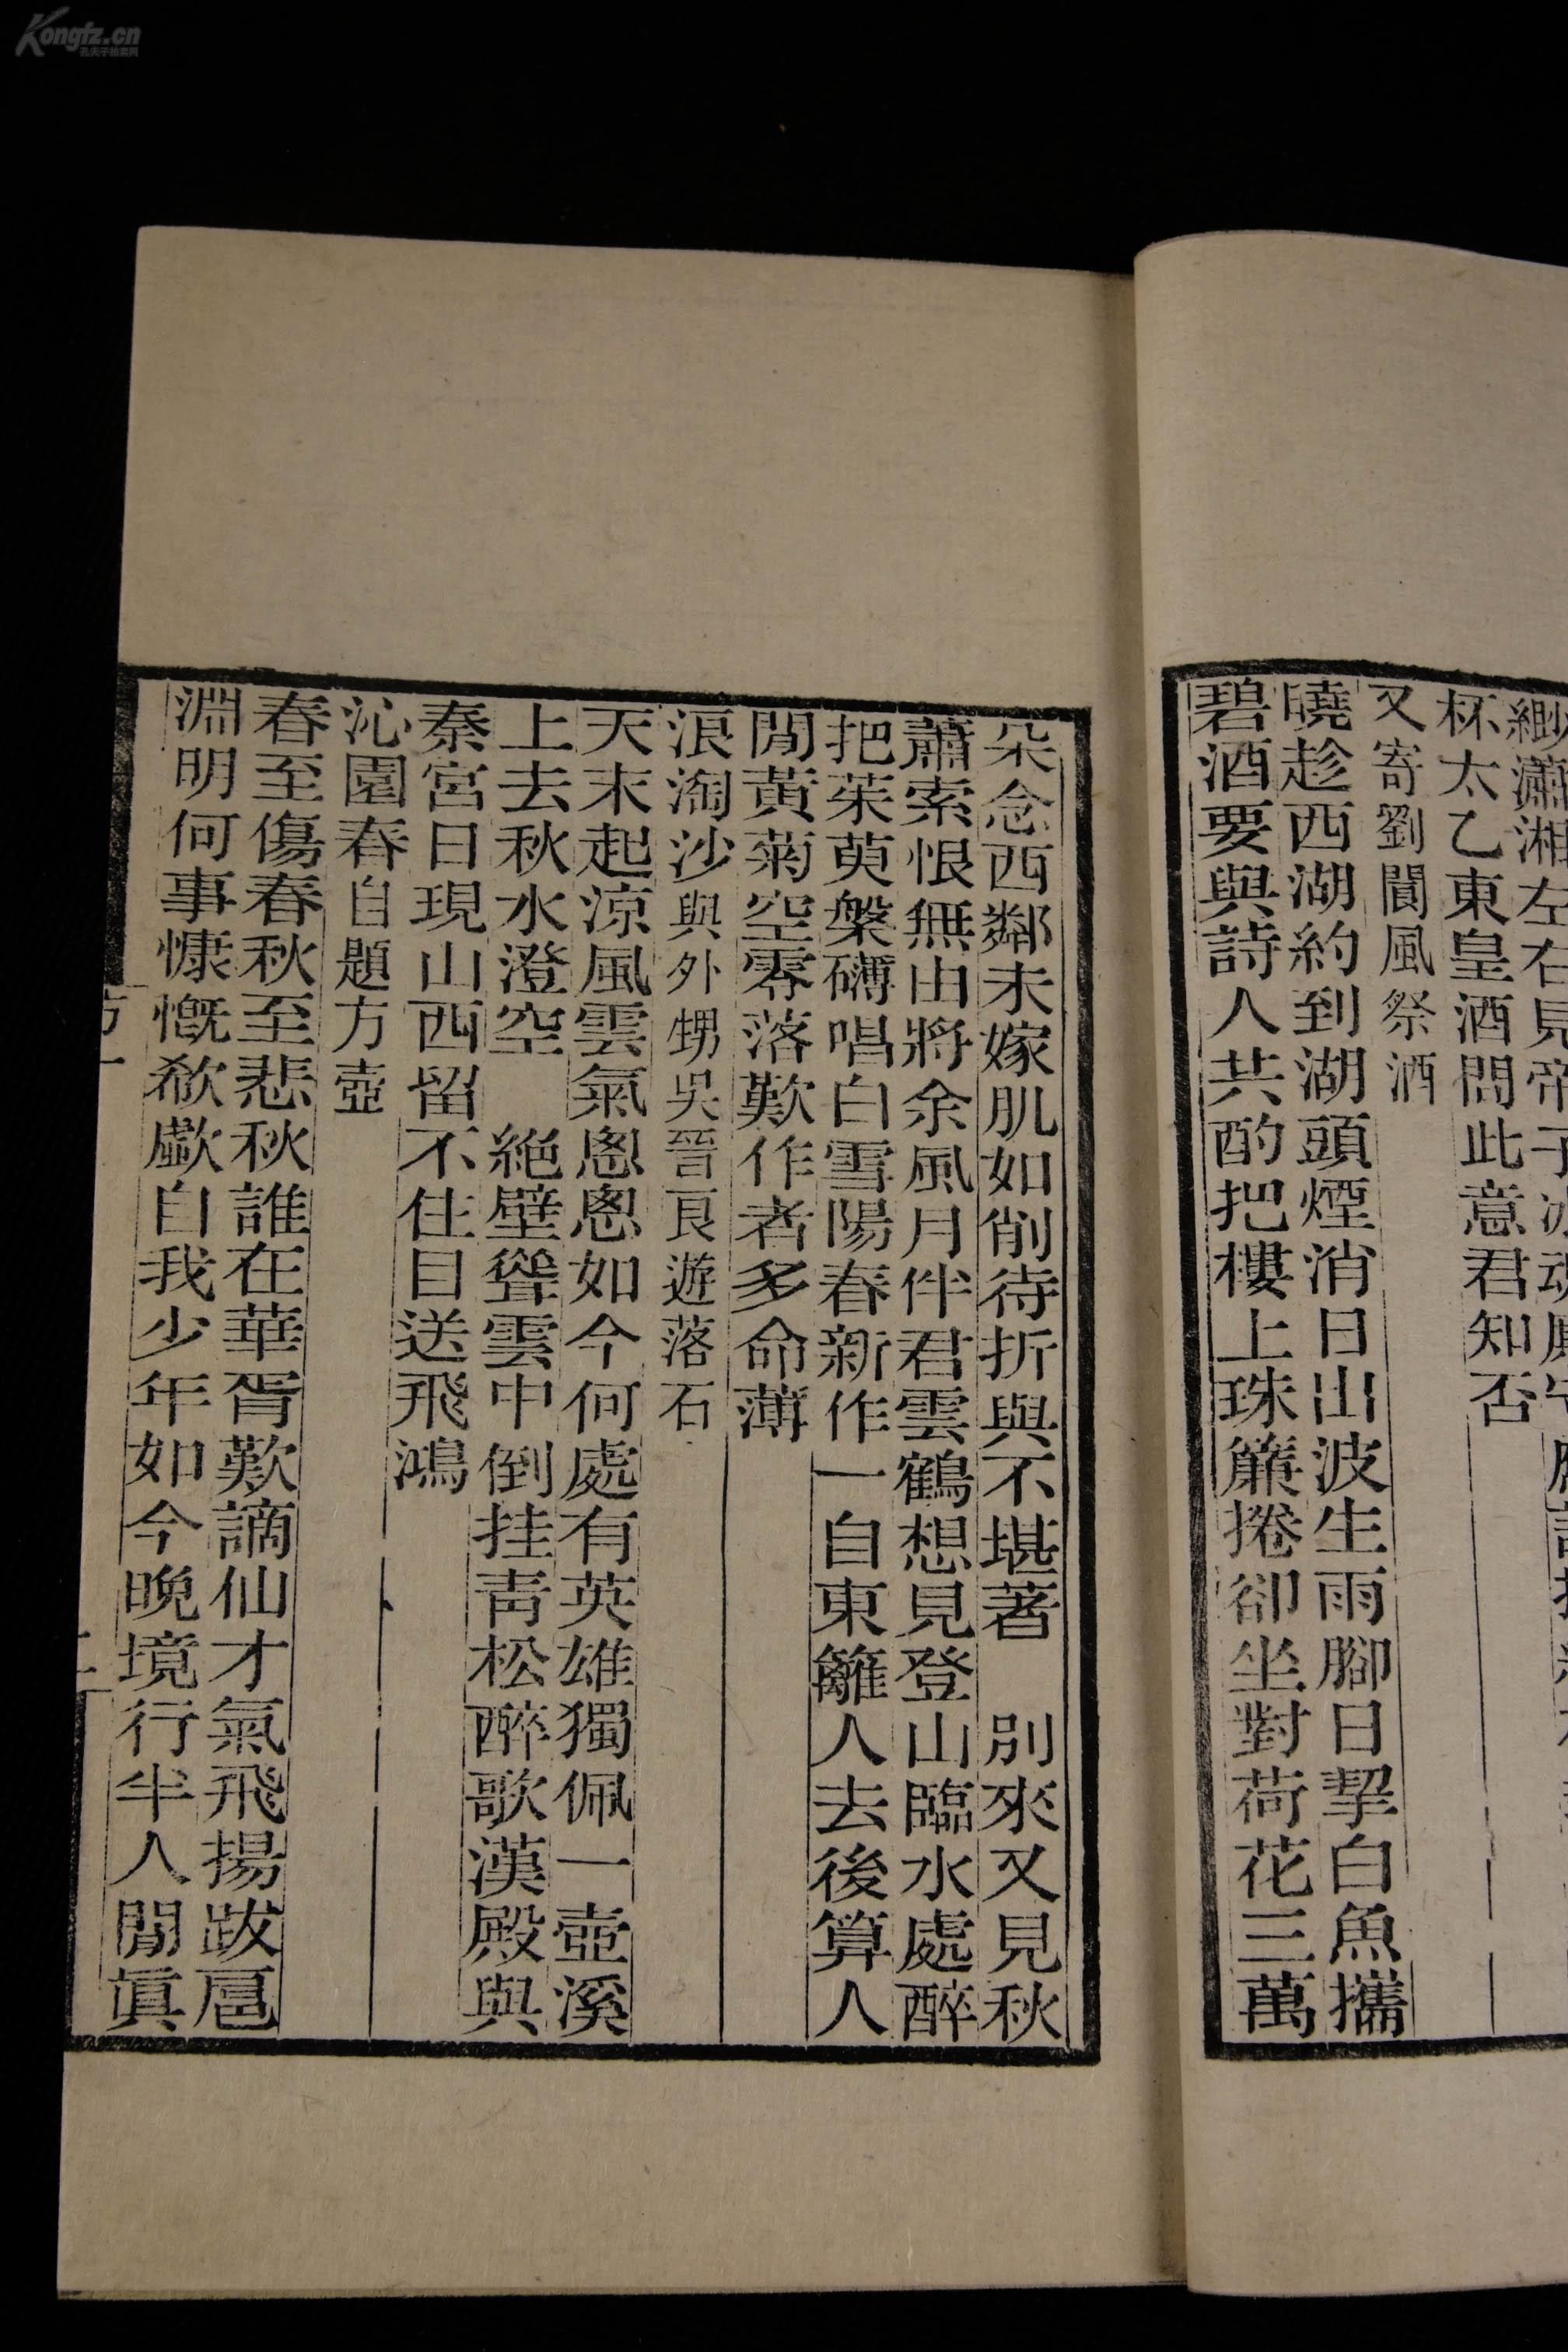 Kongfz.cn
孔夫子拍卖网
緲瀟湘左右見帝子
杯太乙東皇酒問此意君知否
又寄劉閬風祭酒
曉趁西湖約到湖頭煙消日出波生雨腳日挈白魚攜
碧酒要與詩人共酌把樓上珠簾捲卻坐對荷花三萬
朵念西鄰未嫁肌如削待折與不堪著　別來又見秋
蕭索恨無由將余風月伴君雲鶴想見登山臨水處醉
把茱萸槃礴唱白雪陽春新作一自東籬人去後算人
閒黃菊空零落歎作者多命薄
浪淘沙與外甥吳晉良遊落石
天末起涼風雲氣悤悤如今何處有英雄獨佩一壺溪
上去秋水澄空　絕壁聳雲中倒挂青松醉歌漢殿與
秦宮日現山西留不住目送飛鴻
沁園春自題方壺
春至傷春秋至悲秋誰在華胥歎謫仙才氣飛揚跋扈
淵明何事慷慨欷歔自我少年如今晚境行半人閒眞